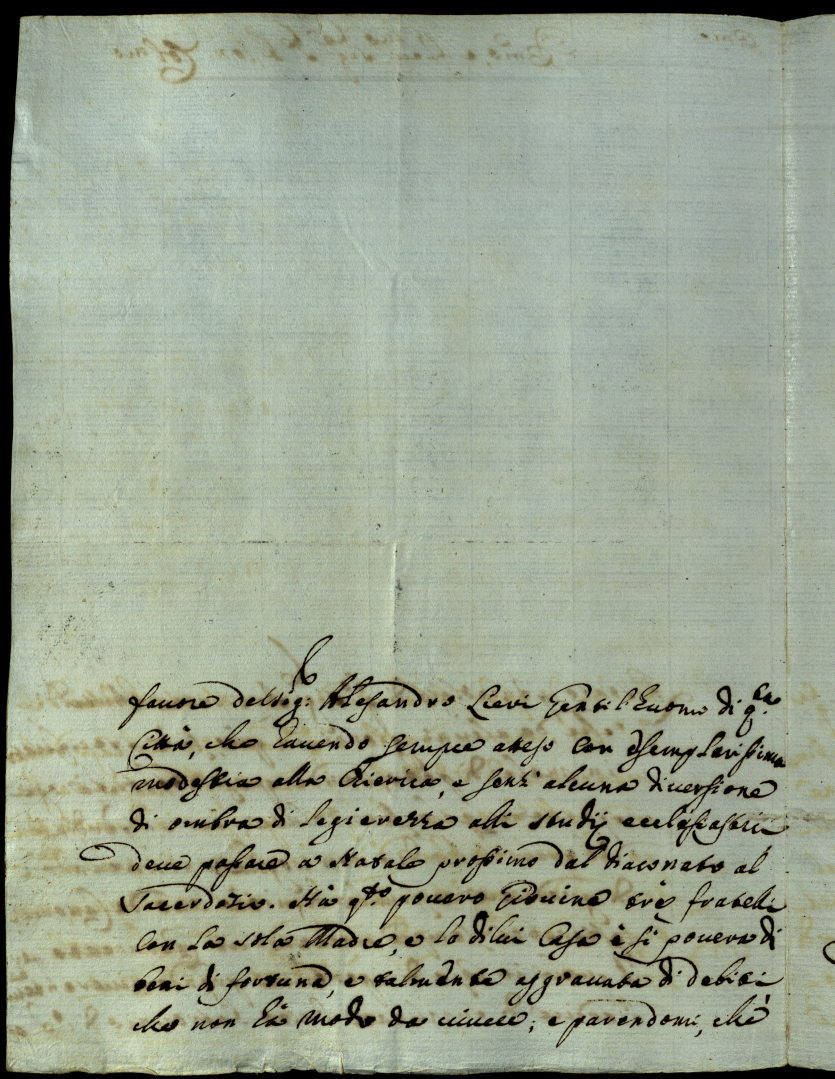 favore del Sig: Alesandro Lievi Gentil'huomo di q.ta
Città, che havendo sempre atteso con esemplarissima
modestia alla Chierica, e senz'alcuna diversione
di ombra di legierezza alli studij ecclesiastici
deve passare a Natale prossimo dal diaconato al
Sacerdotio. Hà q.to povero Giovine trè fratelli
con la sola Madre, e la di lui Casa è si povera di
beni di fortuna, e talmente aggravata di debiti
che non hà modo da vivere; e parendomi, chè